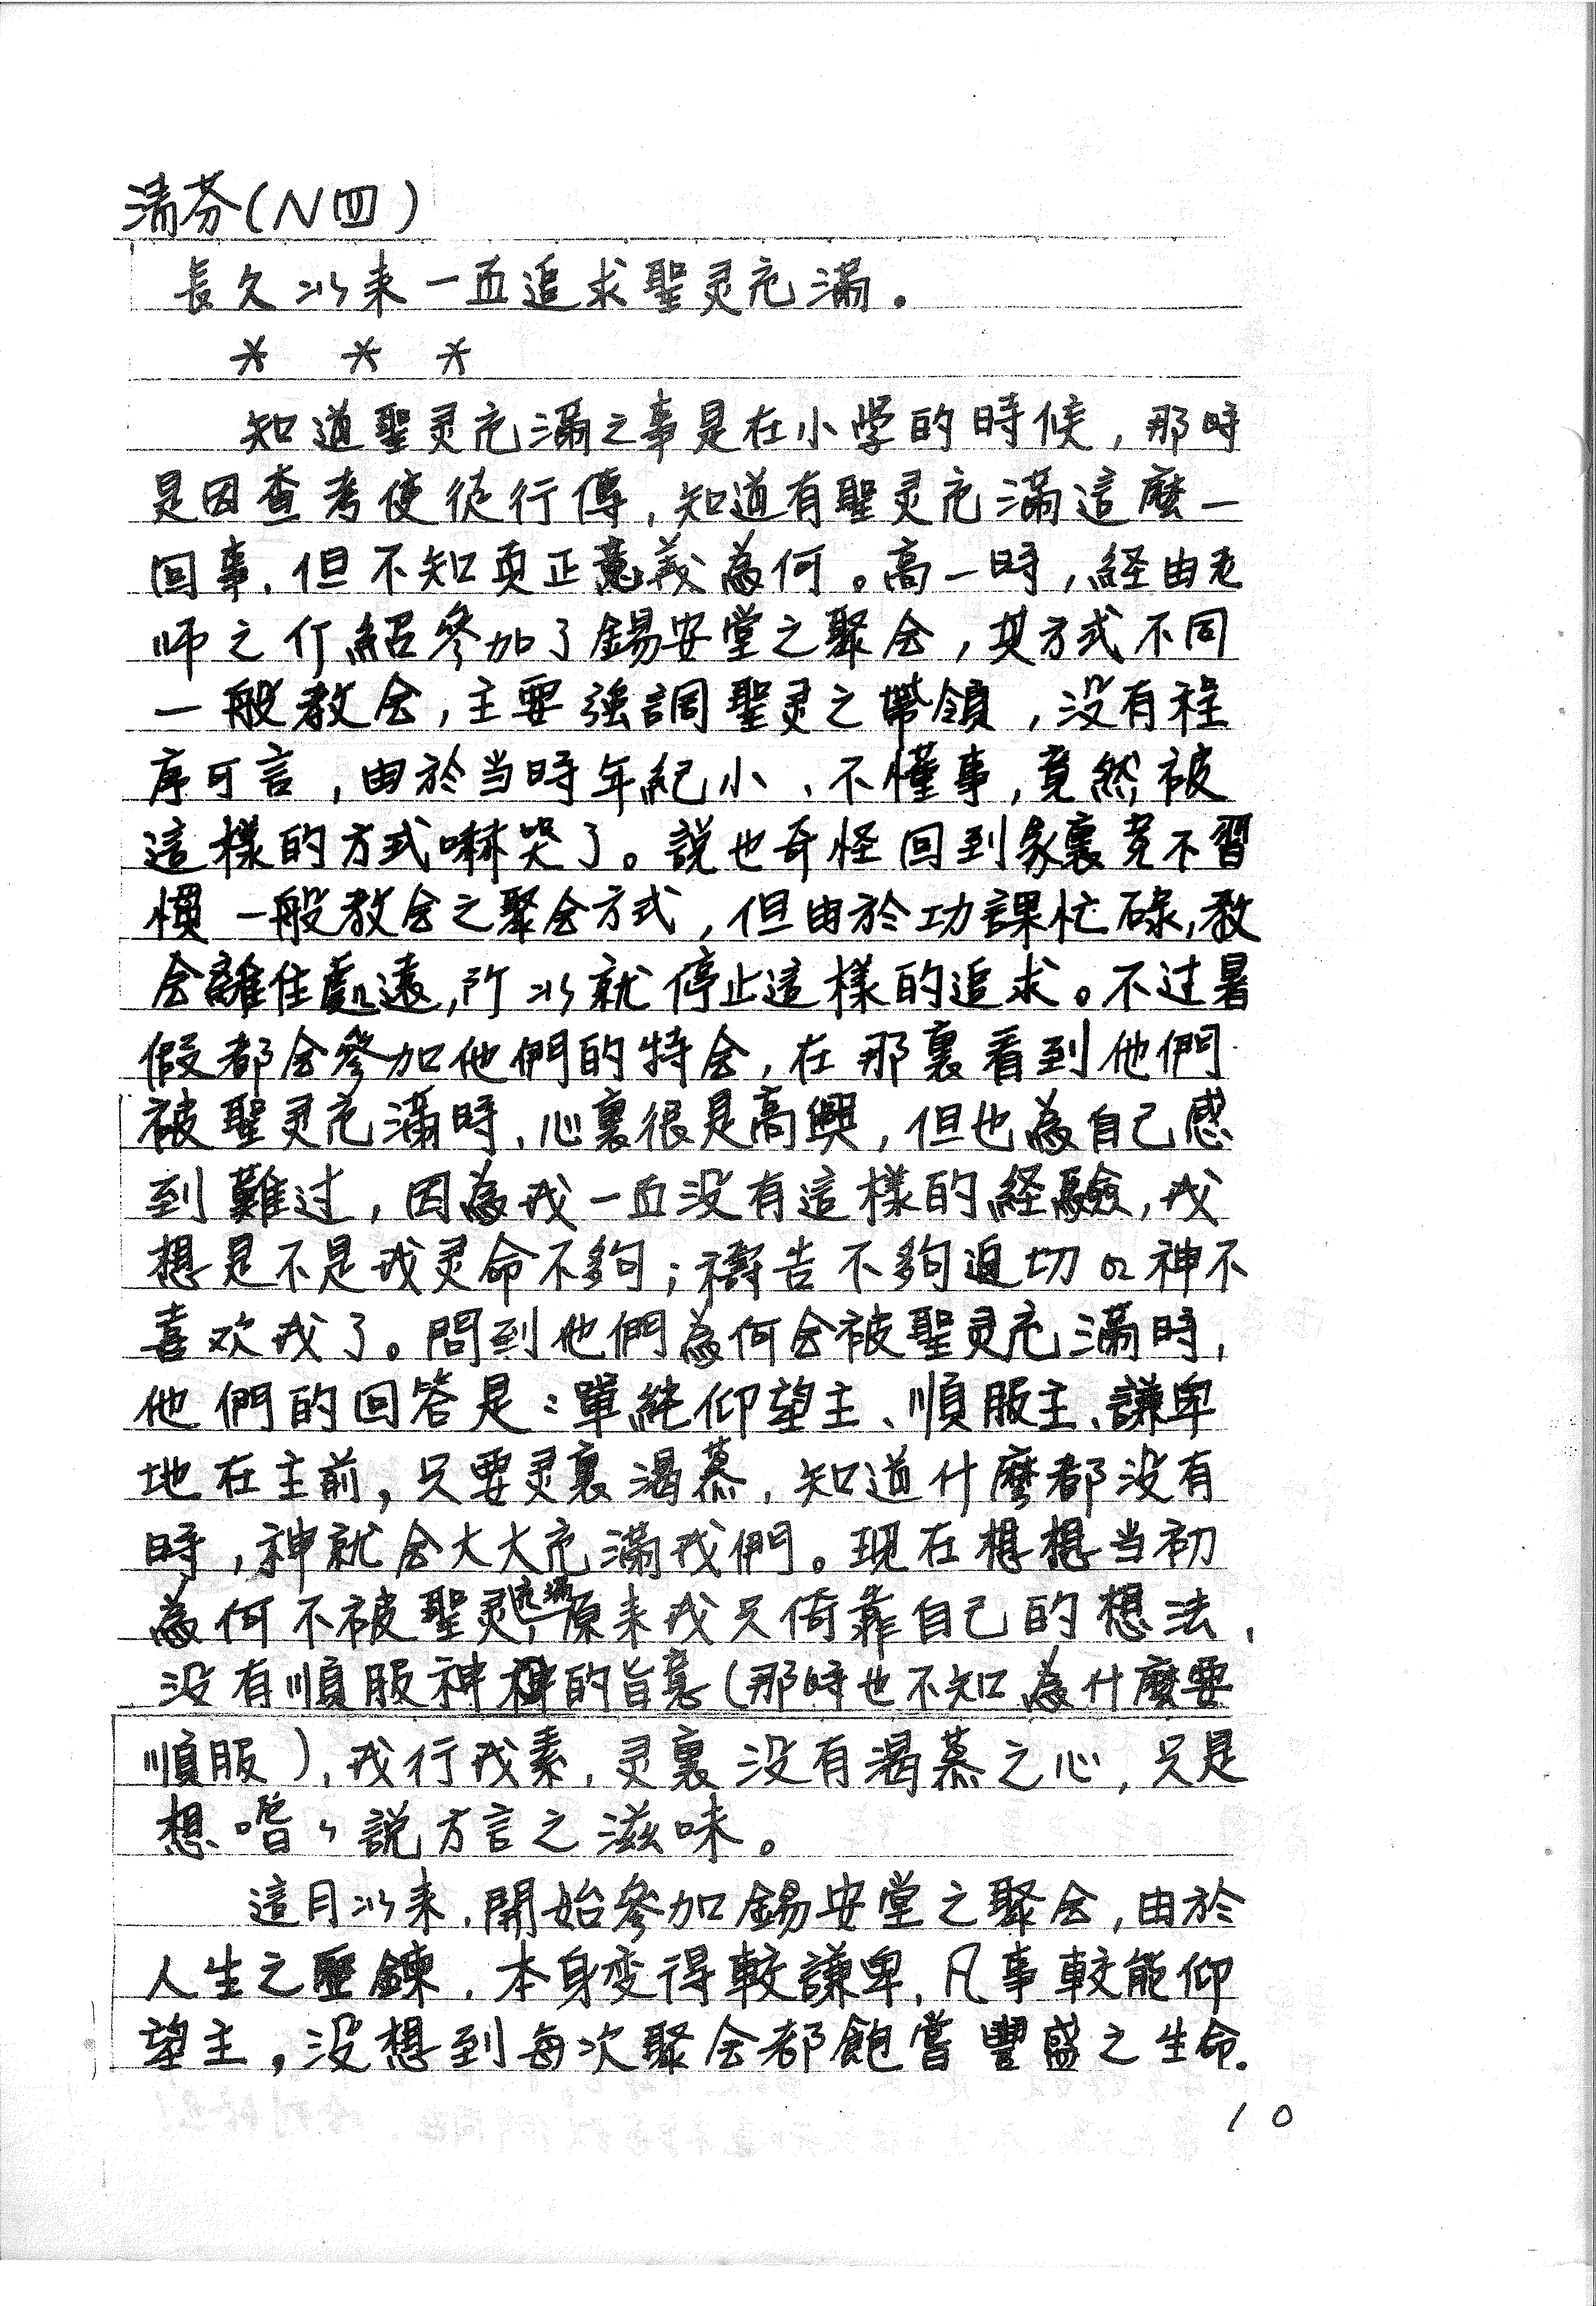 清芬(N四)
長久以来一直追求聖灵充滿。
* * *
知道聖灵充滿之事是在小学的時候,那時
是因查考使徒行傳,知道有聖灵充滿這麼一
回事,但不知真正意義為何。高一時,経由老
师之介紹參加了錫安堂之聚会,其方式不同
一般教会,主要強調聖灵之帶領,没有程
序可言,由於当時年紀小、不懂事,竟然被
這樣的方式嚇哭了。說也奇怪回到家裏竟不習
慣一般教会之聚会方式,但由於功課忙碌,教
会離住處遠,所以就停止這樣的追求。不过暑
假都会參加他們的特会,在那裏看到他們
被聖灵充滿時,心裏很是高興,但也為自己感
到難过,因為我一直没有這樣的経驗,我
想是不是我灵命不夠;禱告不夠迫切or神不
喜欢我了。問到他們為何会被聖灵充滿時,
他們的回答是:單純仰望主、順服主、謙卑
地在主前,只要灵裏渴慕,知道什麼都没有
時,神就会大大充滿我們。現在想想当初
為何不被聖灵充滿,原来我只倚靠自己的想法,
没有順服神的旨意(那時也不知為什麼要
順服),我行我素,灵裏没有渴慕之心,只是
想嚐々說方言之滋味。
這月以来,開始參加錫安堂之聚会,由於
人生之壓鍊,本身变得較謙卑,凡事較能仰
望主,没想到每次聚会都飽嘗豐盛之生命.
10